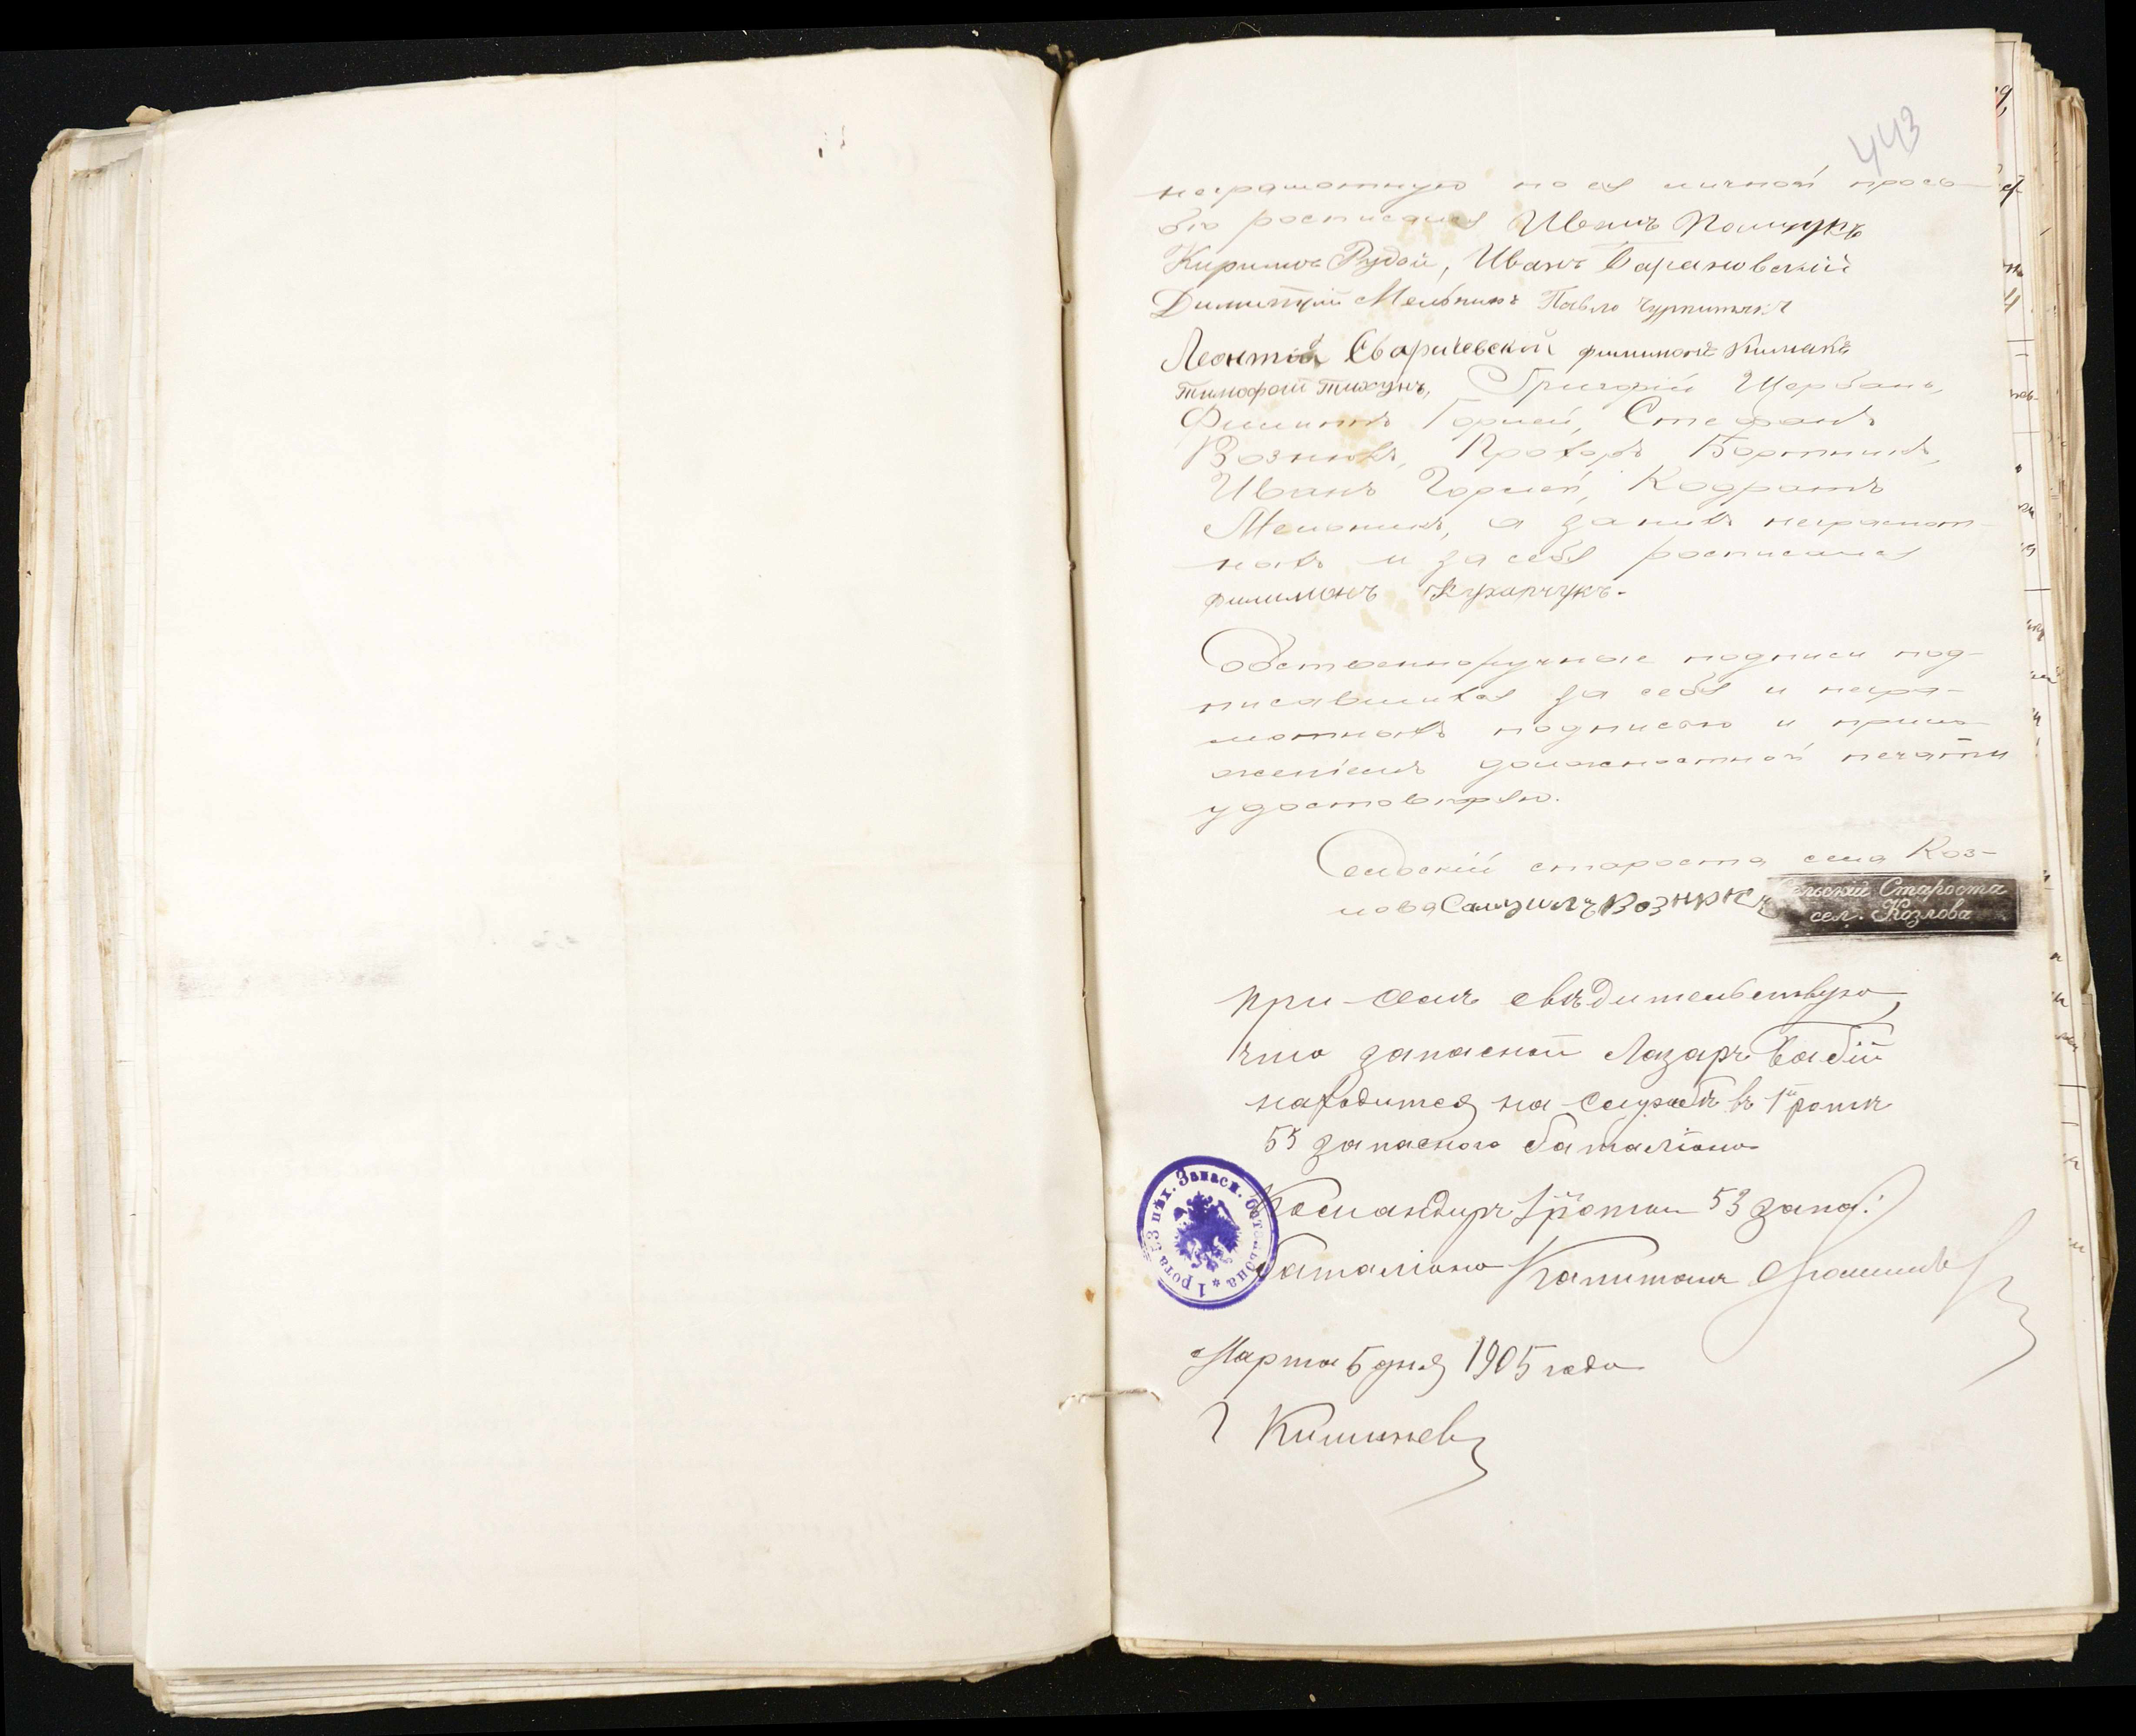 443
неграмотную по ея личной прось-
бѣ росписался Иванъ Полищукъ
Кирилъ Рудой, Иванъ Барановский
Димитрій Мельникъ Павло
Леонтій Сваричевской филимонъ
Тимофей Тихунъ, Григорій Щербань,
Филиппъ Горлей, Стефанъ
Вознюкъ, Прохоръ Бортникъ,
Иванъ Горлей, Кодратъ
Мельникъ, а за нихъ неграмот-
ныхъ и за себя росписался
Филимонъ Кухарчукъ.
Собственноручные подписи под-
писавшихся за себя и негра-
мотныхъ подписью и прило-
женіемъ должностной печати
удостовѣряю.
Сельскій староста села Коз-
лова Вознюкъ
Сельскій Староста
сел. Козлова
При семъ свѣдительствую,
что запасной Лазарь Бабій
находится на службѣ въ 1й ротѣ
53 запасного баталіона
Командиръ 1й роты 53 запа.
баталіона Капитанъ
1 рота 53 пѣх. Запасн. баталіона
Марта 5 дня 1905 года
г Кишиневъ